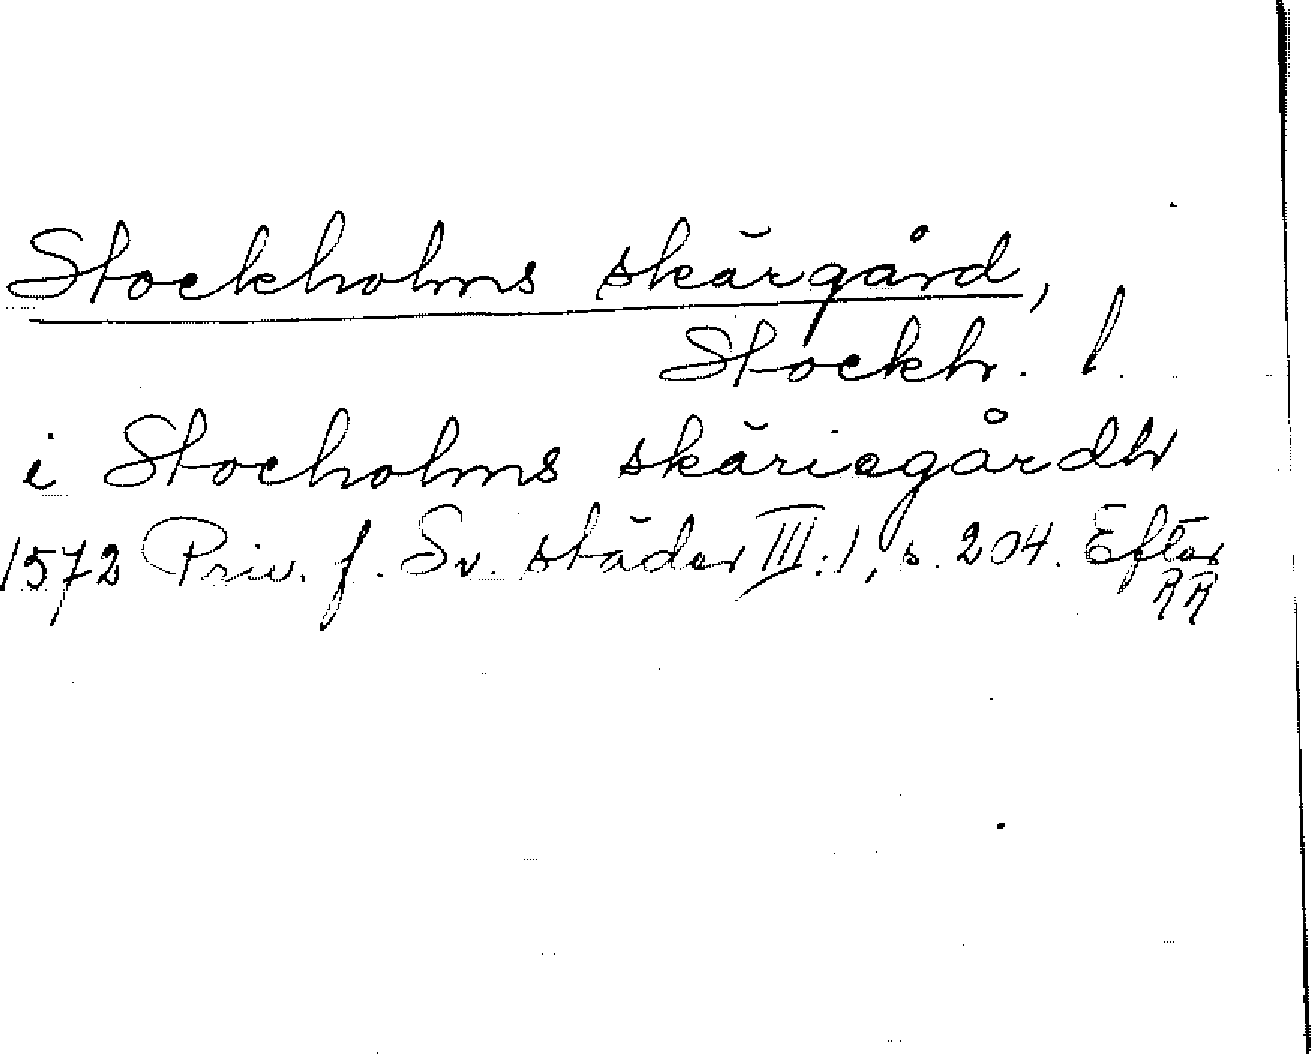 Stockholms skärgård,
Stockh. l.
i Stocholms skäriegårdh
1572 Priv. f. Sv. städer III:1, s. 204. Efter
RR